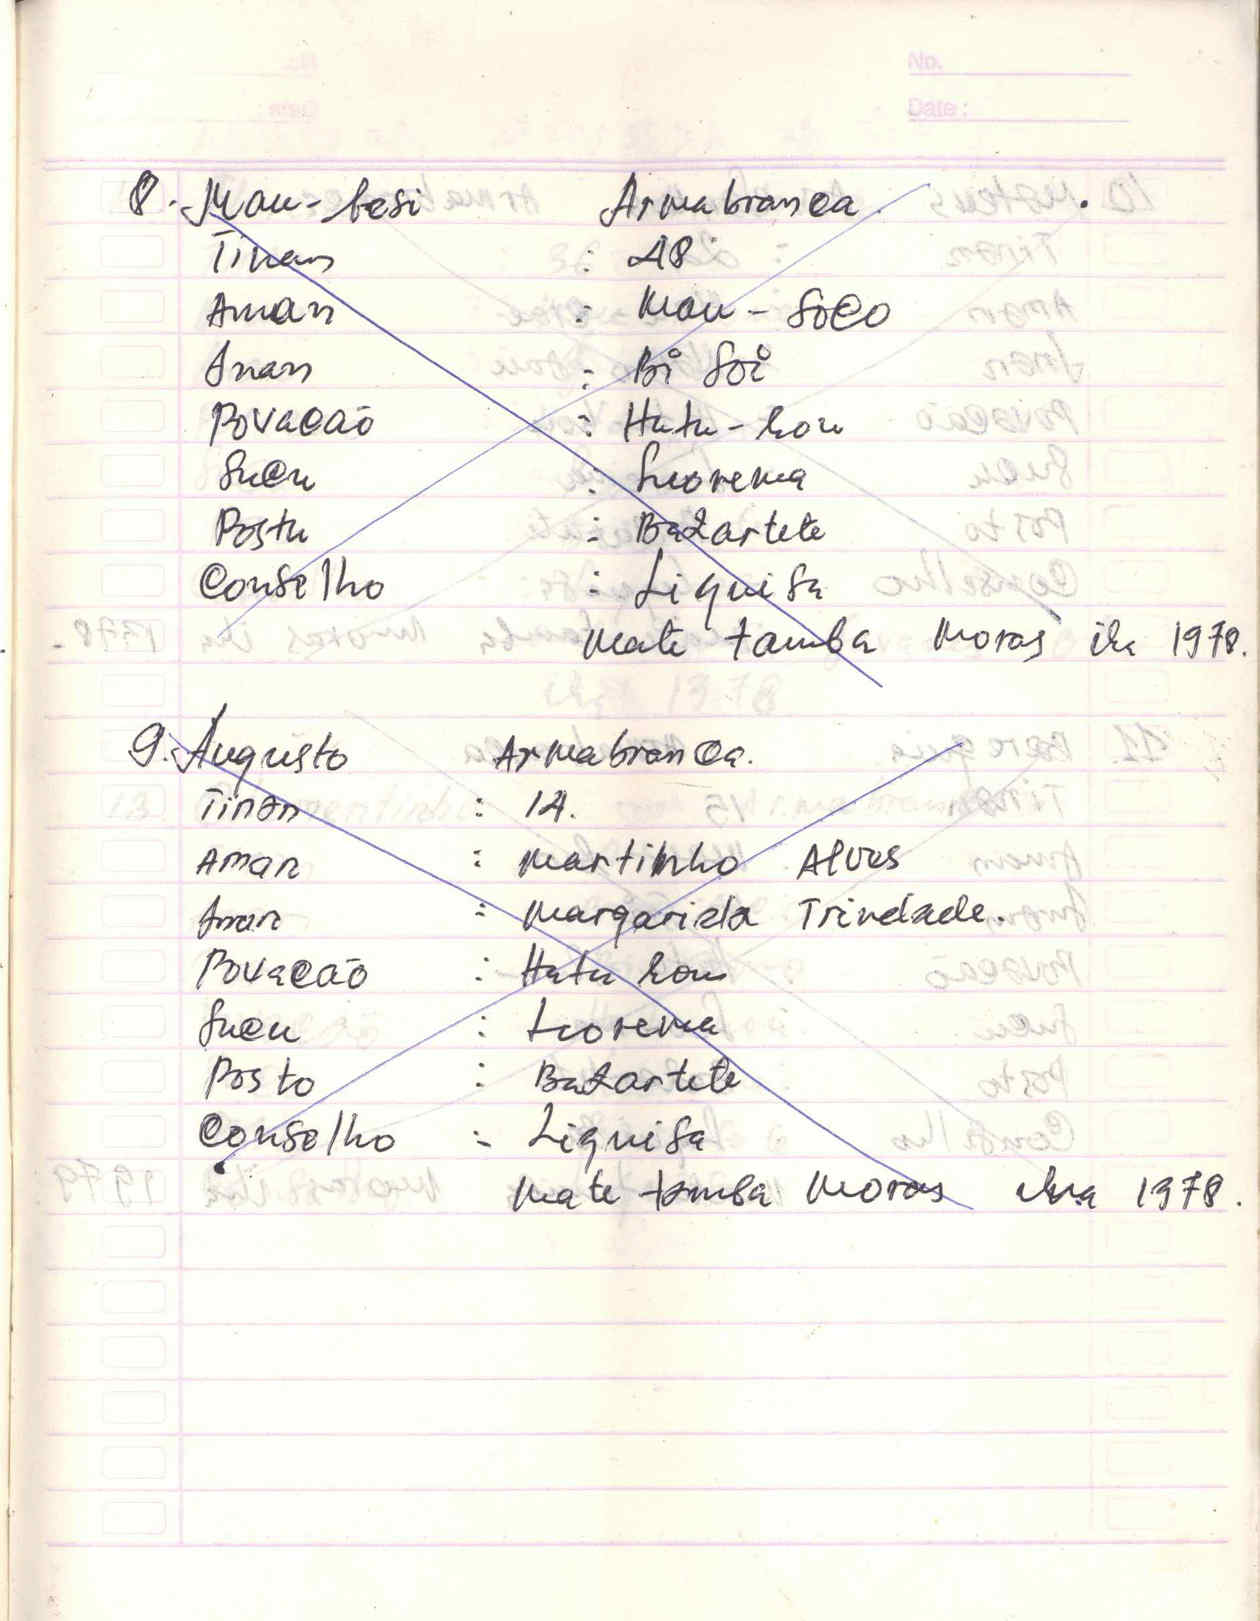 No.
Date:
8. Mau-besi Armabranca.
Tinan : 48
Aman : Mau-Soco
Inan : Bi Soi
Povacão : Hatu-kou
Sucu : Leorema
Postu : Bazartete
Conselho : Liquisa
Mate tamba Moras iha 1978.
9. Augusto Armabranca.
Tinan : 14.
Aman : Martinho Alves
Inan : Margarida Trindade.
Povacão : Hatu kou
Sucu : Leorema
Posto : Bazartete
Conselho : Liquisa
Mate tamba Moras iha 1978.